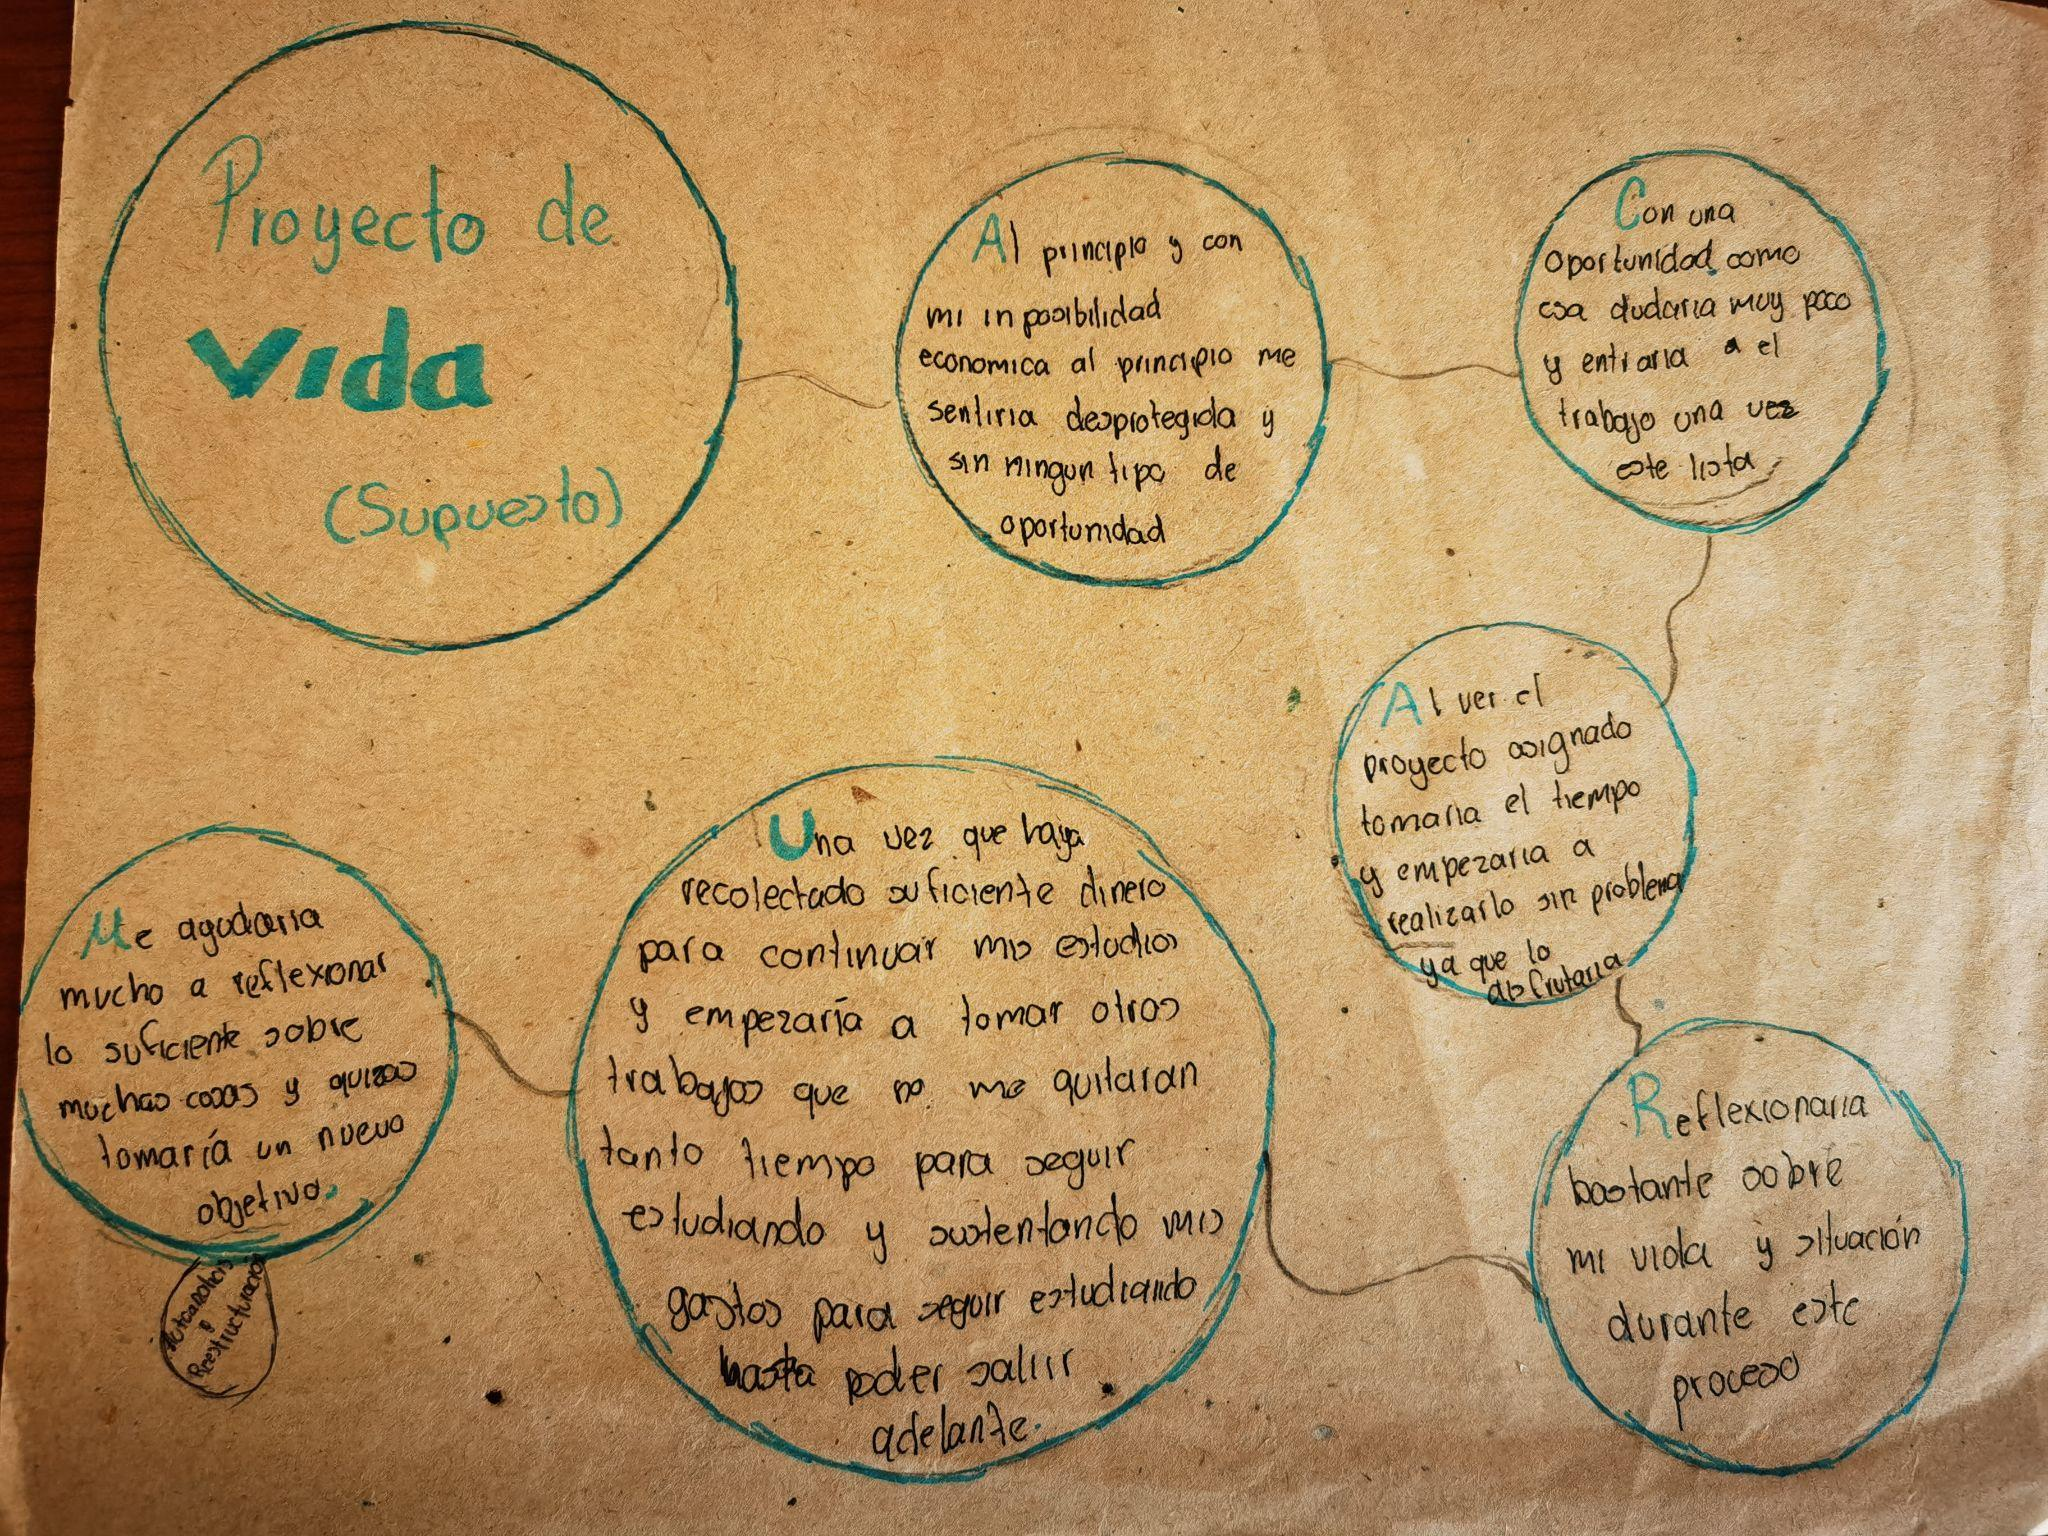 Proyecto de
vida
(Supuesto)
Al principio y con
mi inposibilidad
economica al principio me
sentiria desprotegida y
sin ningun tipo de
oportunidad
Con una
oportunidad como
esa dudaria muy poco
y entraria a el
trabajo una vez
este lista
Al ver el
proyecto asignado
tomaria el tiempo
y empezaria a
realizarlo sin problema
ya que lo
disfrutaria
Reflexionaria
bastante sobre
mi vida y situación
durante este
proceso
Una vez que haya
recolectado suficiente dinero
para continuar mis estudios
y empezaría a tomar otros
trabajos que no me quitaran
tanto tiempo para seguir
estudiando y sustentando mis
gastos para seguir estudiando
hasta poder salir
adelante.
Me ayudaria
mucho a reflexionar
lo suficiente sobre
muchas cosas y quizas
tomaría un nuevo
objetivo.
Autoanalisis
y
Reestructuración